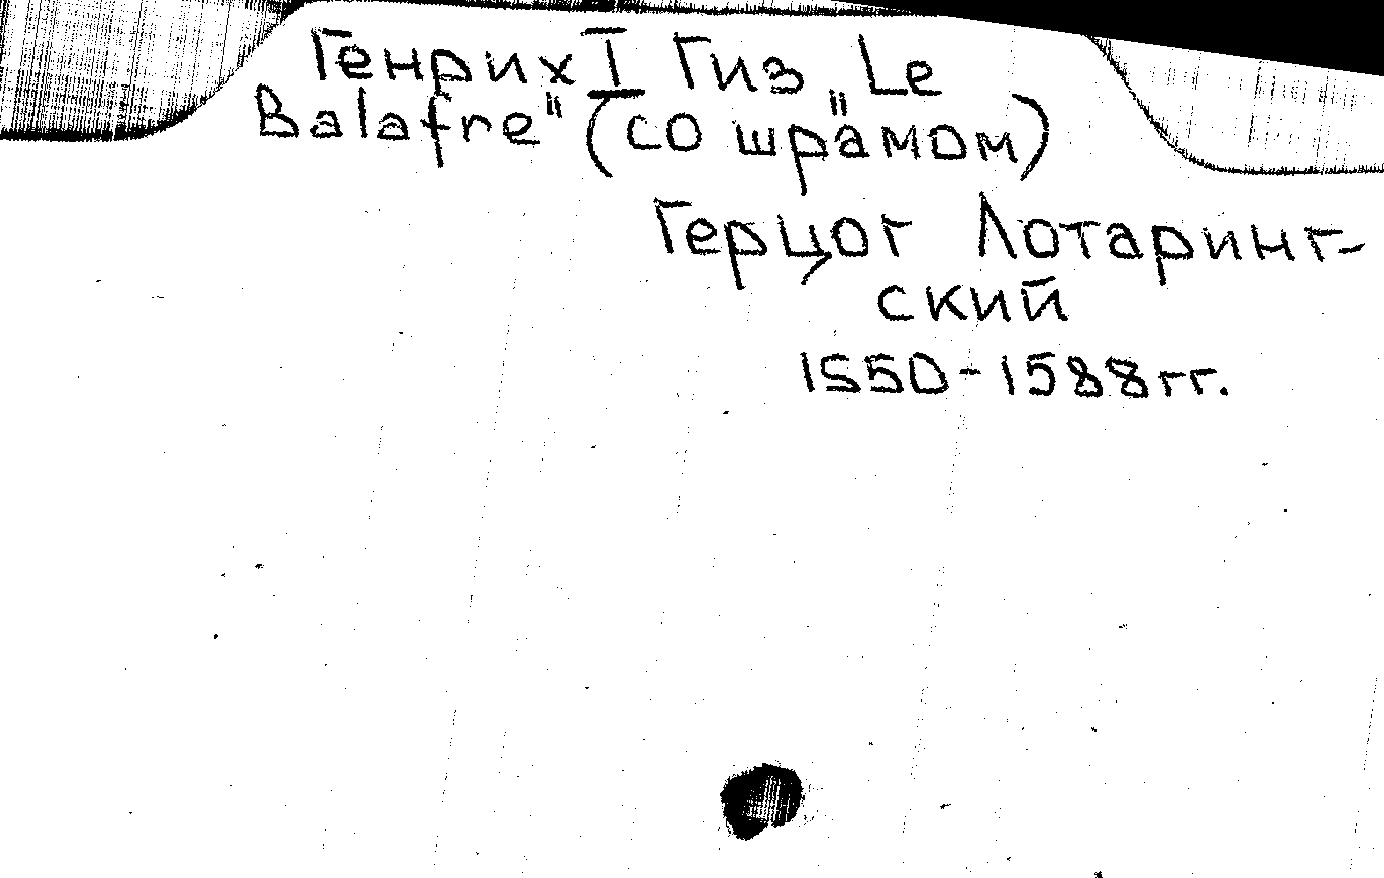 Генрих I Гиз "Le
Balafre" (со шрамом)
Герцог Лотаринг-
ский
1550-1588 гг.